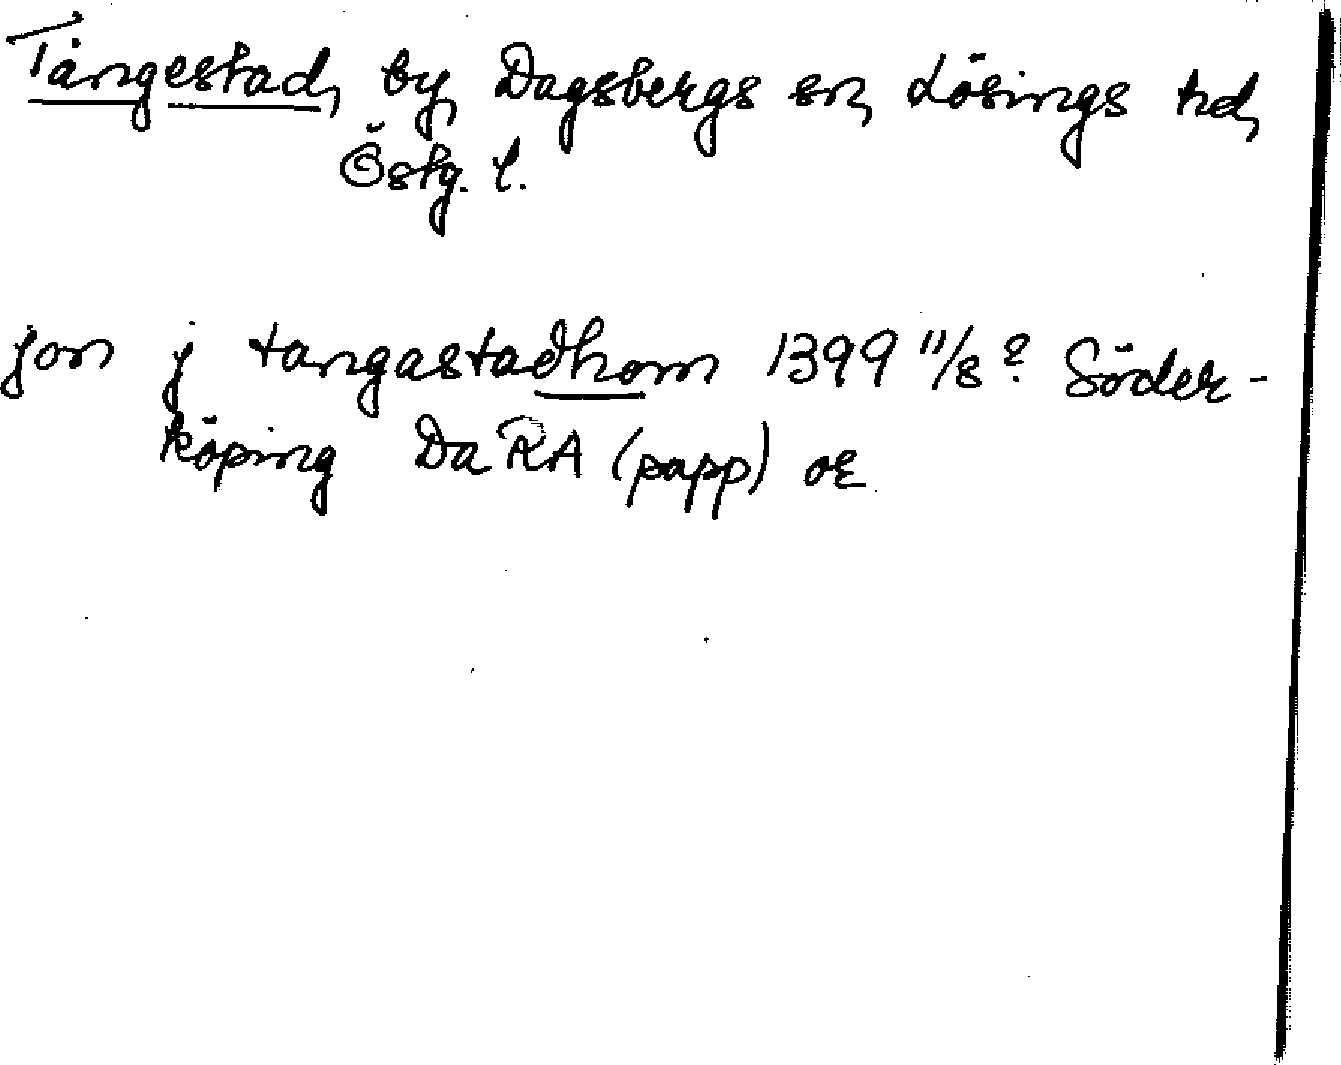 Tångestad, by, Dagsbergs sn, Lösings hd,
Östg. l.
jon j tangastadhom 1399 11/8? Söder-
köping Da RA (papp) or